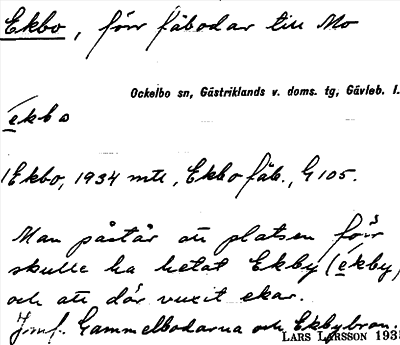 Ekbo, förr fäbodar till Mo
Ockelbo sn, Gästriklands v. doms. tg, Gävleb. l.
ekbo
Ekbo, 1934 mtl, Ekbo fäb., G 105.
Man påstår att platsen förr
skulle ha hetat Ekby (ekby)
och att där vuxit ekar.
Jmf. Gammelbodarna och Ekbybron.
LARS LARSSON 1935